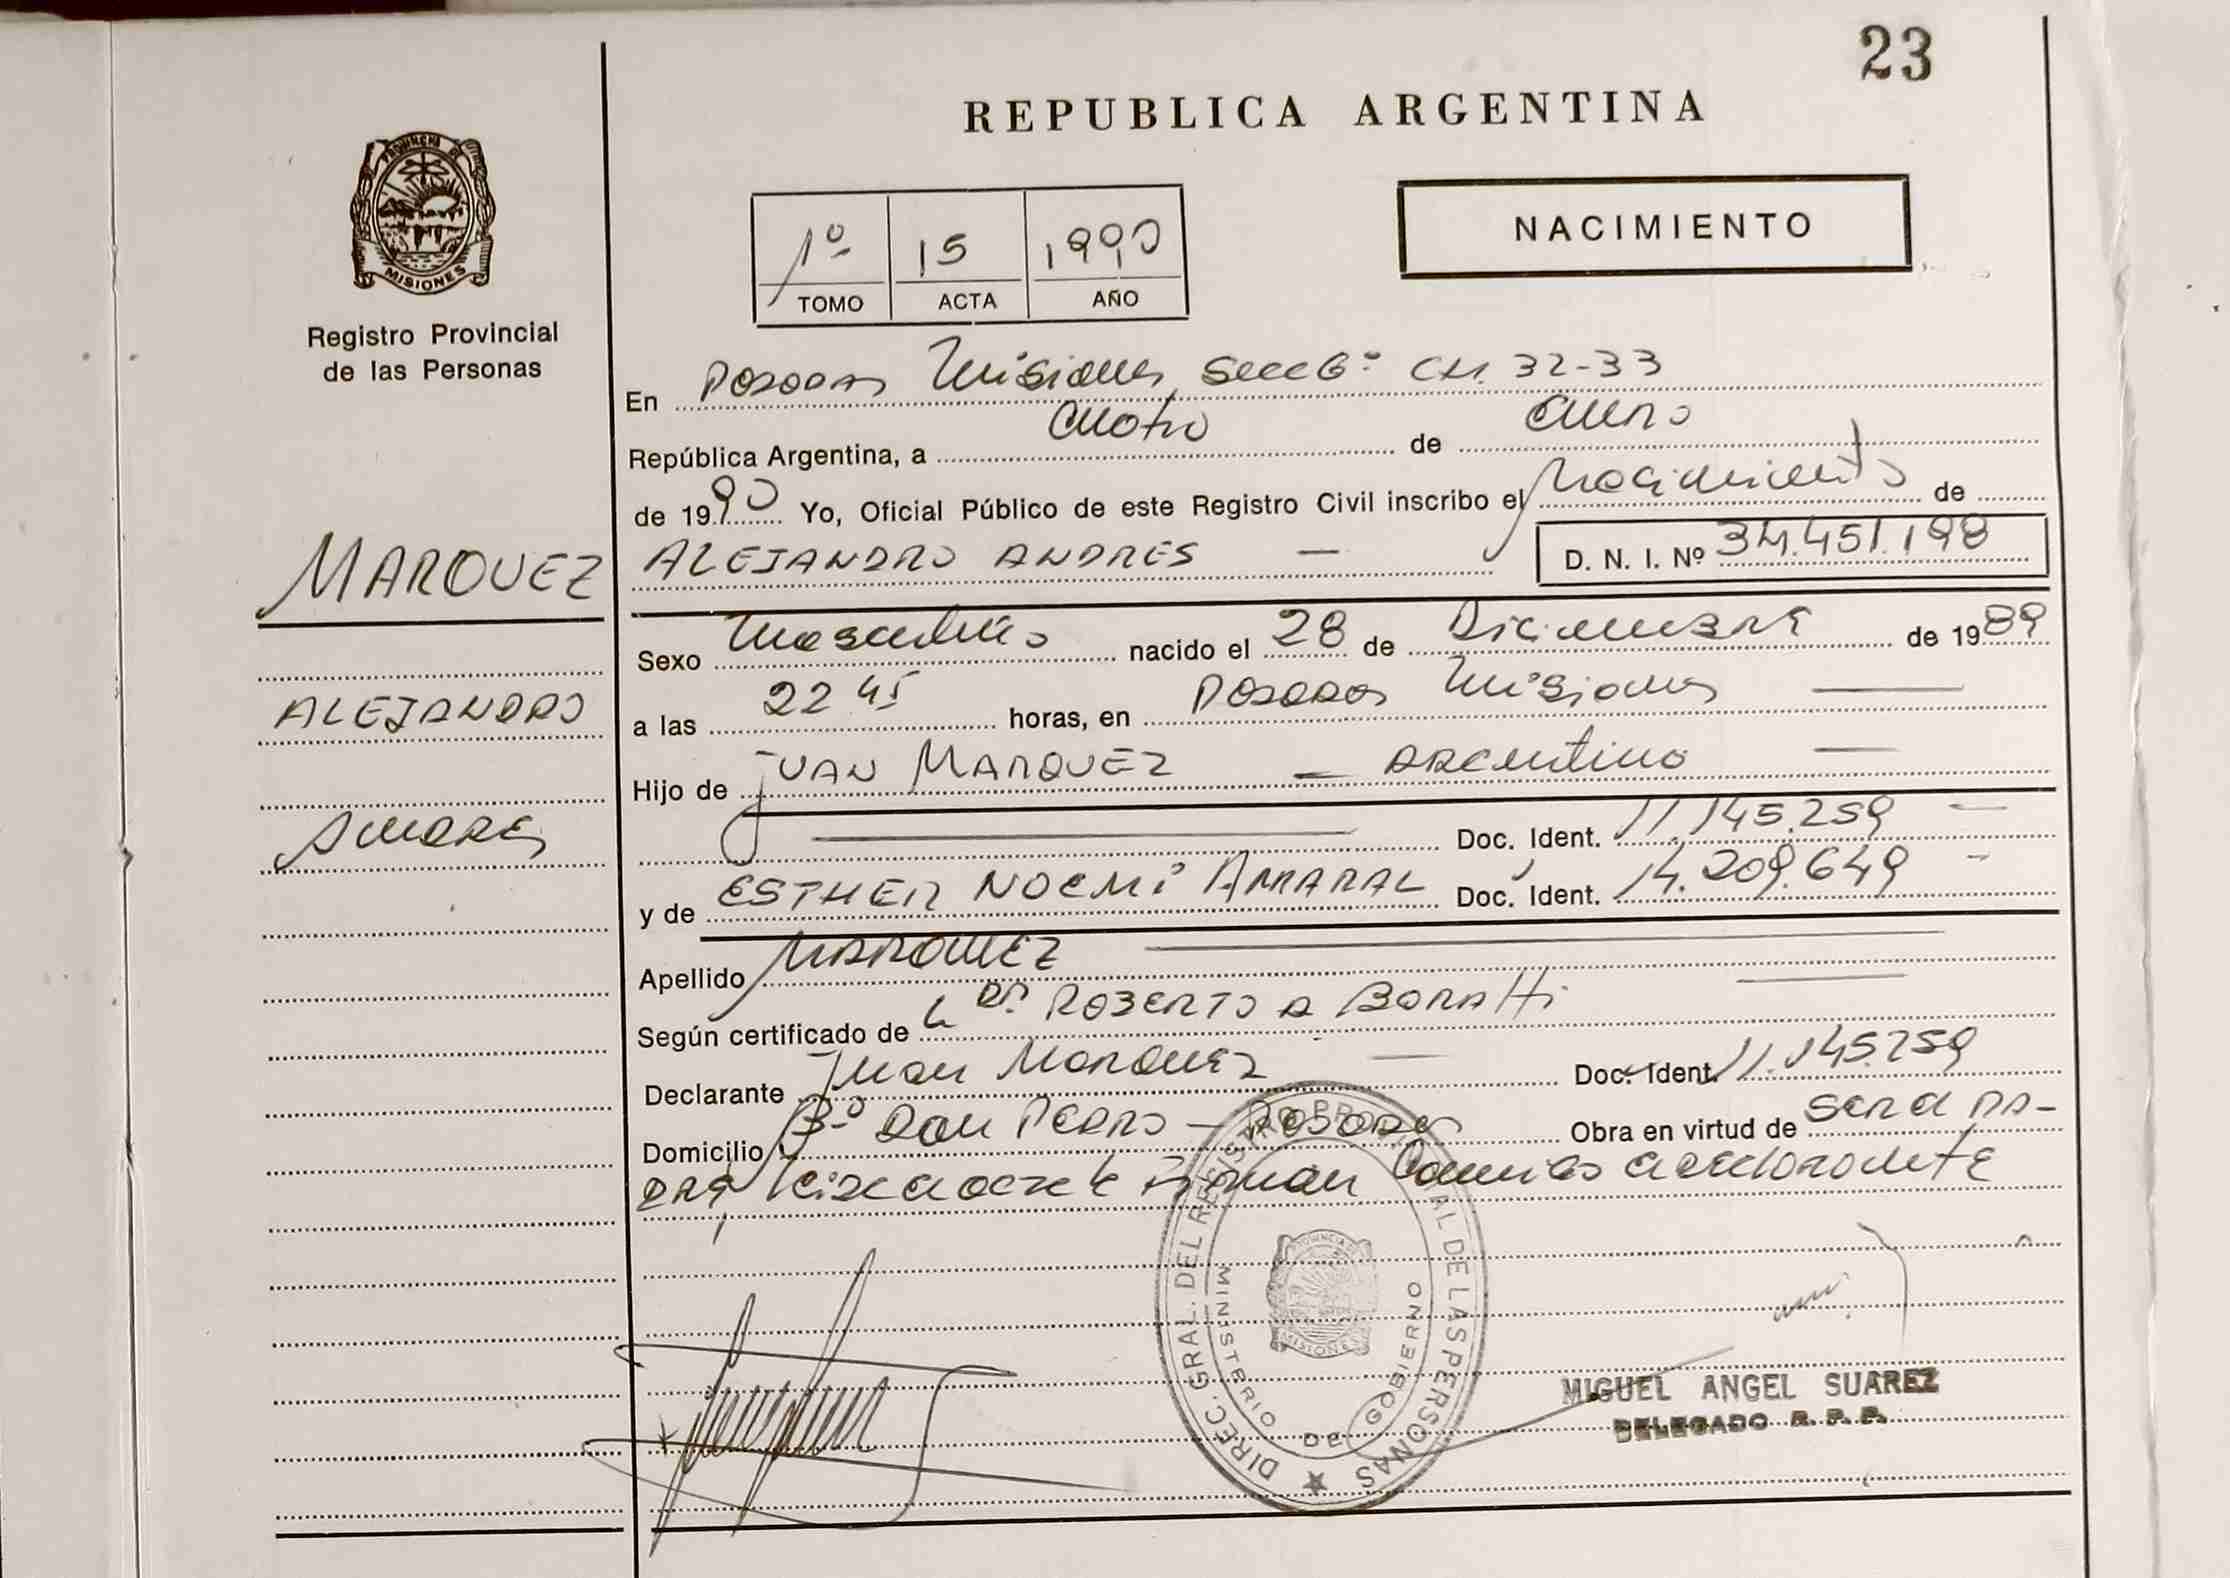 23
REPUBLICA ARGENTINA
PROVINCIA DE MISIONES
Registro Provincial
de las Personas
NACIMIENTO
1º 15 1990
TOMO ACTA AÑO
En POSADAS Misiones Secc 6º CH. 32-33
República Argentina, a cuatro de enero
de 1990 Yo, Oficial Público de este Registro Civil inscribo el Nacimiento de
ALEJANDRO ANDRES — D. N. I. Nº 34.451.198
MARQUEZ
ALEJANDRO
ANDRES
Sexo Masculino nacido el 28 de Diciembre de 1989
a las 22 45 horas, en POSADAS Misiones —
Hijo de JUAN MARQUEZ — ARGentino —
— Doc. Ident. 11.145.259 —
y de ESTHER NOEMÍ AMARAL Doc. Ident. 14.209.649 —
Apellido MARQUEZ —
Según certificado de Dr. ROBERTO A BORATTI —
Declarante Juan MARQUEZ — Doc. Ident. 11.145.259
Domicilio Bº DON PEDRO — POSADAS Obra en virtud de
firman
DIREC. GRAL. DEL REGISTRO PROVINCIAL DE LAS PERSONAS
MINISTERIO DE GOBIERNO
PROVINCIA DE MISIONES
MIGUEL ANGEL SUAREZ
DELEGADO R. P. P.